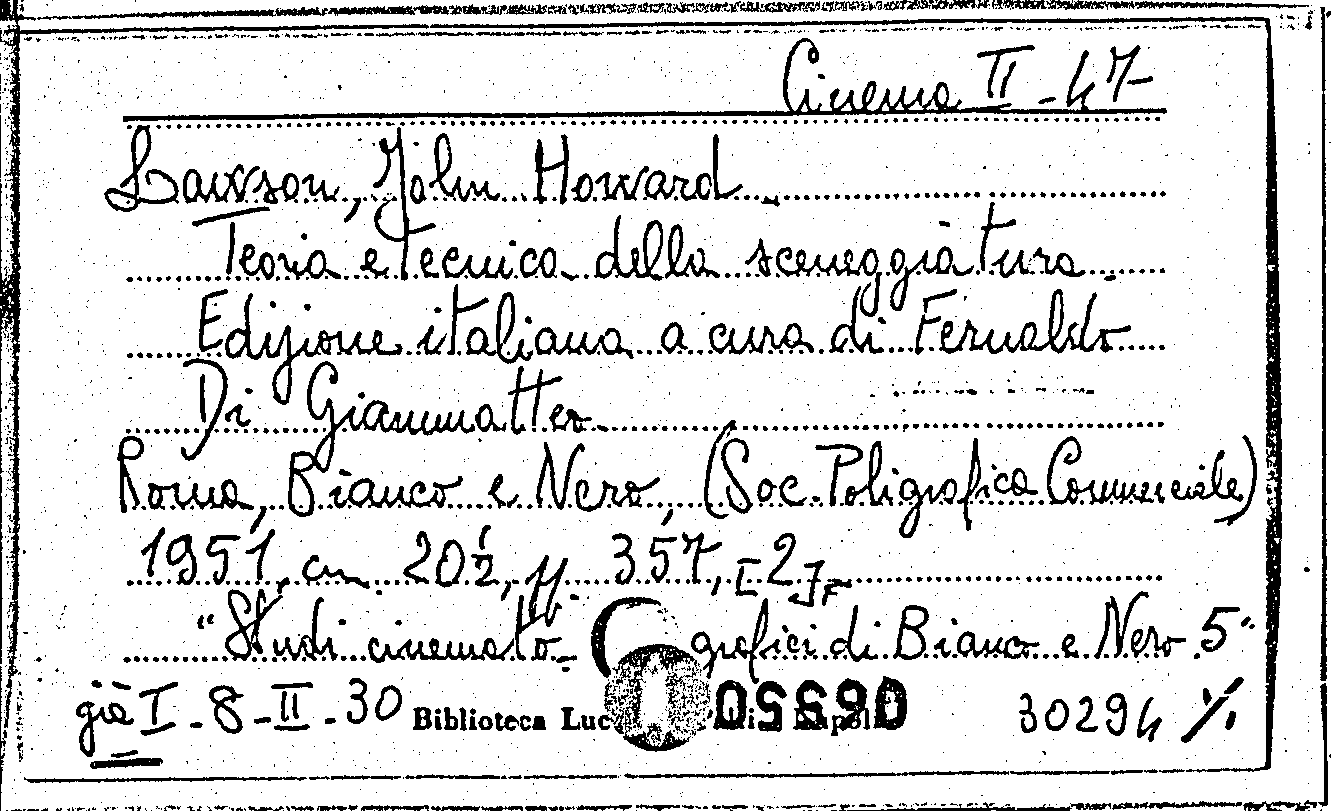 Cinema II - 47
Lawson, John Howard.
Teoria e tecnica della sceneggiatura.
Edizione italiana a cura di Fernaldo
Di Giammatteo.
Roma, Bianco e Nero, (Soc. Poligrafica Commerciale)
1951, cm. 20½, pp. 357, [2]
"Studi cinematografici di Bianco e Nero 5"
già I - 8 - II - 30 Biblioteca Luc 30294